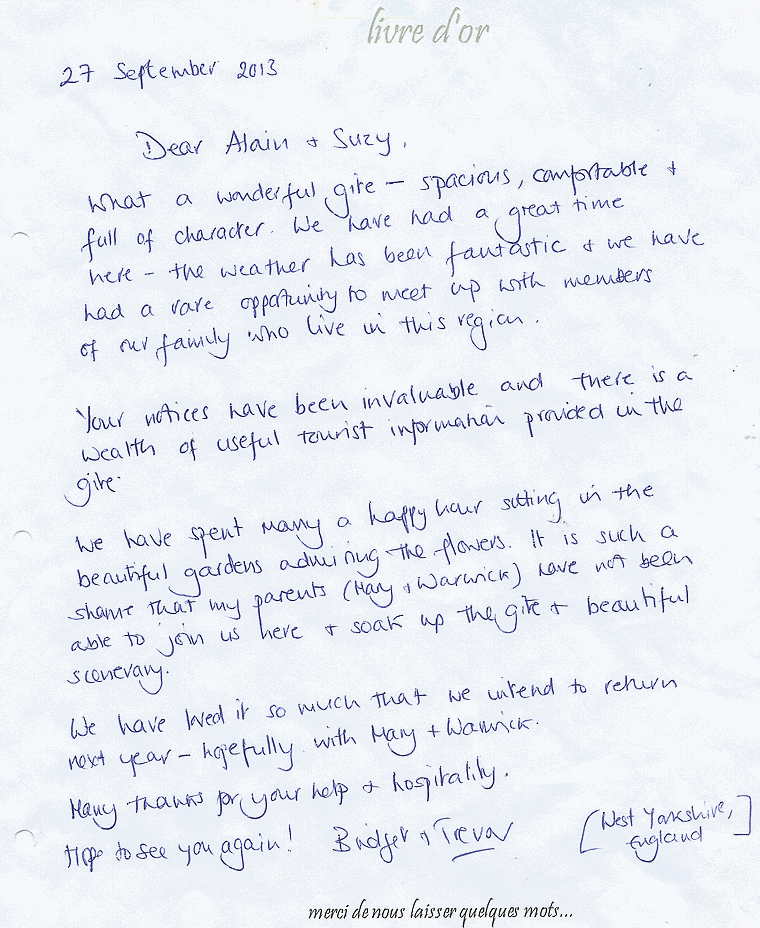 livre d'or
27 September 2013
Dear Alain + Suzy,
What a wonderful gite – spacious, comfortable +
full of character. We have had a great time
here – the weather has been fantastic + we have
had a rare opportunity to meet up with members
of our family who live in this region.
Your notices have been invaluable and there is a
wealth of useful tourist information provided in the
gite.
We have spent many a happy hour sitting in the
beautiful gardens admiring the flowers. It is such a
shame that my parents (Mary + Warwick) have not been
able to join us here + soak up the gite + beautiful
scenerary.
We have loved it so much that we intend to return
next year – hopefully with Mary + Warwick.
Many thanks for your help + hospitality.
Hope to see you again! Bridget + Trevor
[West Yorkshire,
England]
merci de nous laisser quelques mots...